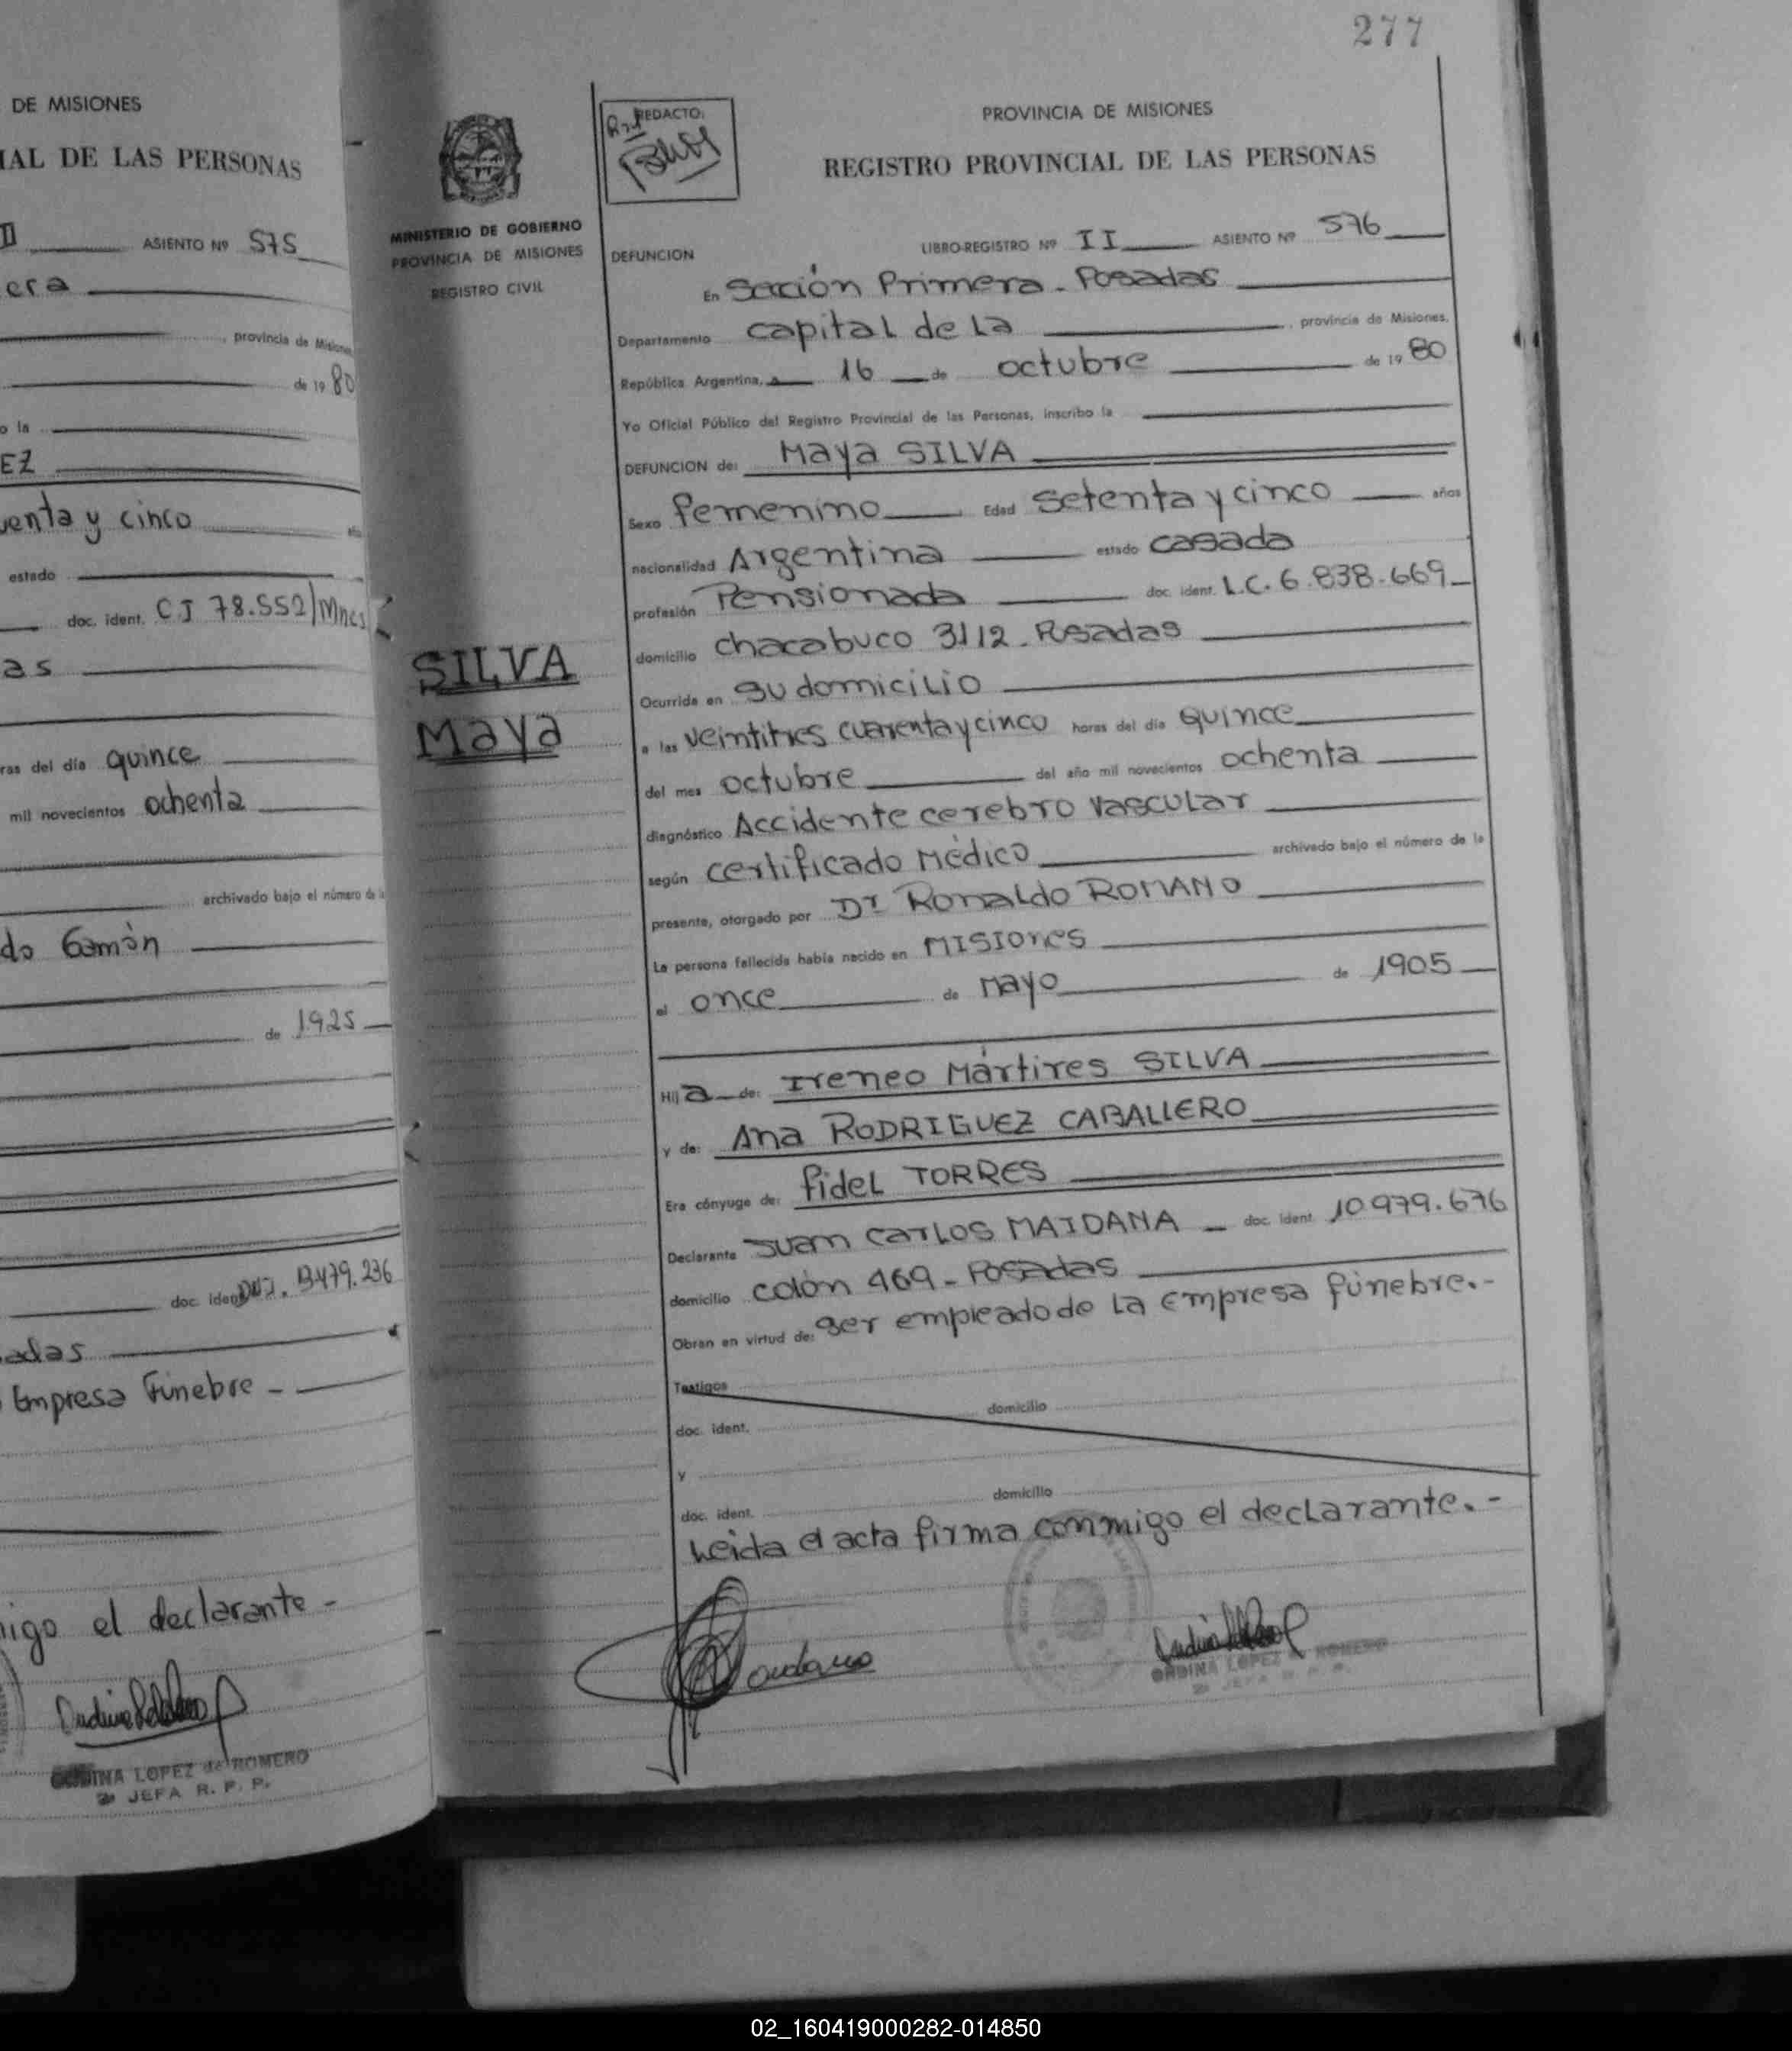 DE MISIONES
IAL DE LAS PERSONAS
II ASIENTO Nº 575
era
, provincia de Misiones
de 19 80
o la
EZ
uenta y cinco
estado
doc. ident. C I 78.552/Mnes
as
ras del día quince
mil novecientos ochenta
archivado bajo el número de la
do Gamón
de 1925
doc. ident. DNI. 13.479.236
adas
Empresa Fúnebre -
nigo el declarante -
LOPEZ de ROMERO
JEFA R. P. P.
277
MINISTERIO DE GOBIERNO
PROVINCIA DE MISIONES
REGISTRO CIVIL
SILVA
Maya
REDACTO:
PROVINCIA DE MISIONES
REGISTRO PROVINCIAL DE LAS PERSONAS
DEFUNCION LIBRO-REGISTRO Nº II ASIENTO Nº 576
En Sección Primera - Posadas
Departamento capital de La , provincia de Misiones,
República Argentina, a 16 de octubre de 19 80
Yo Oficial Público del Registro Provincial de las Personas, inscribo la
DEFUNCION de: Maya SILVA
Sexo femenino Edad setenta y cinco años
nacionalidad Argentina estado casada
profesión Pensionada doc. ident. L.C. 6.838.669
domicilio chacabuco 3112 - Posadas
Ocurrida en su domicilio
a las veintitres cuarenta y cinco horas del día quince
del mes octubre del año mil novecientos ochenta
diagnóstico Accidente cerebro vascular
según certificado Médico archivado bajo el número de la
presente, otorgado por Dr Ronaldo ROMANO
La persona fallecida había nacido en Misiones
el once de mayo de 1905
Hij a de: Ireneo Mártires SILVA
y de: Ana RODRIGUEZ CABALLERO
Era cónyuge de: fidel TORRES
Declarante Juan Carlos MAIDANA doc. ident. 10.979.676
domicilio colón 469 - Posadas
Obran en virtud de: ser empleado de la empresa fúnebre.-
Testigos
domicilio
doc. ident.
y
domicilio
doc. ident.
Leida el acta firma conmigo el declarante.-
ONDINA LOPEZ de ROMERO
02_160419000282-014850